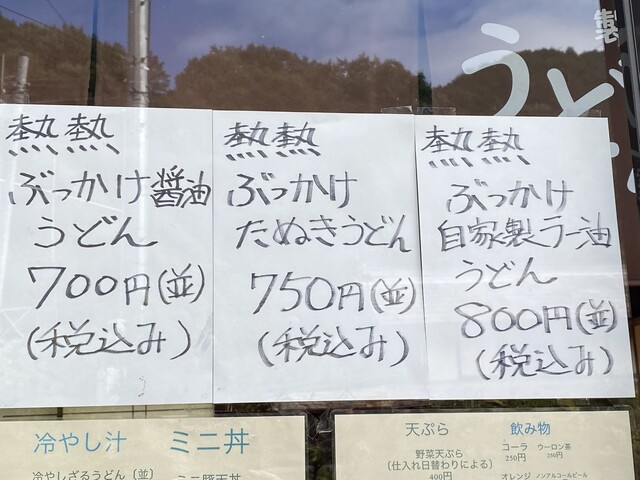 製
うど
熱熱
ぶっかけ醤油
うどん
700円(並)
(税込み)
熱熱
ぶっかけ
たぬきうどん
750円(並)
(税込み)
熱熱
ぶっかけ
自家製ラー油
うどん
800円(並)
(税込み)
冷やし汁
冷やしざるうどん〔並〕
ミニ丼
ミニ豚天丼
天ぷら
野菜天ぷら
(仕入れ日替わりによる)
400円
飲み物
コーラ ウーロン茶
250円 250円
オレンジ ノンアルコールビール